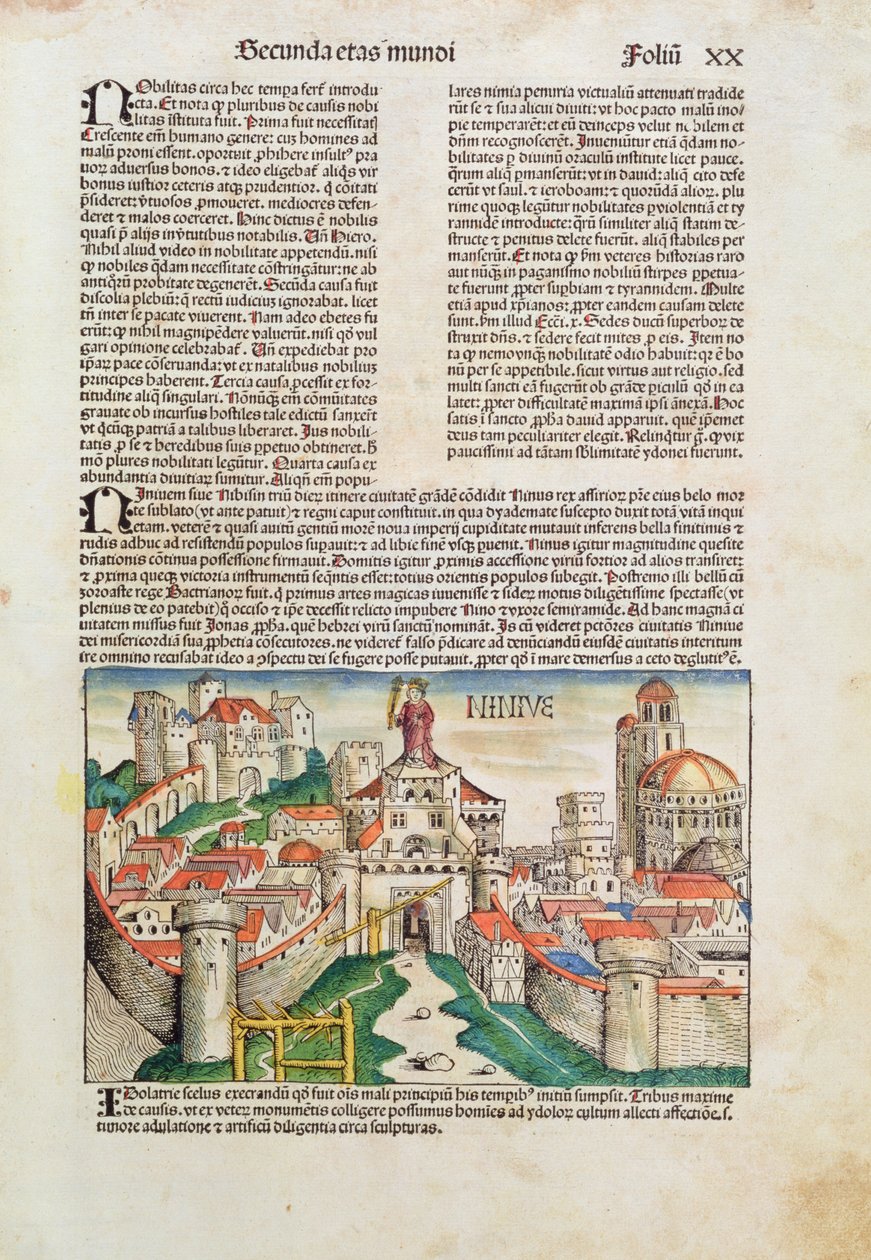 Secunda etas mundi
Foliū XX
NObilitas circa hec tempa ferť introdu-
cta. Et nota ꝙ pluribus de causis nobi
litas īstituta fuit. Prima fuit necessitas
Crescente em̄ humano genere: cuȝ homines ad
malū proni essent. oportuit ꝓhibere insultꝰ pra
uoꝝ aduersus bonos. ⁊ ideo eligebať aliq̄s vir
bonus iustior ceteris atqꝫ prudentior. q̄ cōitati
p̄sideret: v̓tuosos ꝓmoueret. mediocres defen-
deret ⁊ malos coerceret. Hinc dictus ē nobilis
quasi p̄ alijs in v̓tutibus notabilis. Un̄ Hiero.
Nihil aliud video in nobilitate appetendū. nisi
ꝙ nobiles q̄dam necessitate cōstringātur: ne ab
antiq̄ꝝ probitate degenerēt. Secūda causa fuit
discolia plebiū: q̄ rectū iudiciuȝ ignorabat. licet
tn̄ inter se pacate viuerent. Nam adeo ebetes fu
erūt: ꝙ nihil magnipēdere valuerūt. nisi qd̓ vul
gari opinione celebrabať. Un̄ expediebat pro
ip̄aꝝ pace cōseruanda: vt ex natalibus nobiliuȝ
principes haberent. Tercia causa ꝓcessit ex for-
titudine aliq̄ꝝ singulari. Nōnūqꝫ em̄ cōmūitates
grauate ob incursus hostiles tale edictū sanxert̄
vt qcūqꝫ patriā a talibus liberaret. Jus nobili-
tatis ꝓ se ⁊ heredibus suis ꝑpetuo obtineret. H̄
mō plures nobilitati legūtur. Quarta causa ex
abundantia diuitiaꝝ sumitur. Aliqn̄ em̄ popu-
lares nimia penuria victualiū attenuati tradide
rūt se ⁊ sua alicui diuiti: vt hoc pacto malū ino/
pie temperarēt: et eū deinceps velut nobilem et
dn̄m recognoscerēt. Inueniūtur etiā q̄dam no-
bilitates ꝑ diuinū oraculū institute licet pauce.
q̄rum aliq̄ ꝑmanserūt: vt in dauid: aliq̄ cito defe
cerūt vt saul. ⁊ ieroboam: ⁊ quorūdā alioꝝ. plu
rime quoqꝫ legūtur nobilitates ꝑ violentiā et ty
rannidē introducte: q̄rū similiter aliq̄ statim de-
structe ⁊ penitus delete fuerūt. aliq̄ stabiles per
manserūt. Et nota ꝙ s̄m veteres historias raro
aut nūqꝫ in paganismo nobiliū stirpes ꝑpetua-
te fuerunt ꝓpter suꝑbiam ⁊ tyrannidem. Multe
etiā apud xp̄ianos: ꝓpter eandem causam delete
sunt. s̄m illud Ecc̄i. x. Sedes ducū superboꝝ de
struxit dn̄s. ⁊ sedere fecit mites ꝓ eis. Item no
ta ꝙ nemo vnqꝫ nobilitatē odio habuit: qr̄ ē bo
nū per se appetibile. sicut virtus aut religio. sed
multi sancti eā fugerūt ob grāde ꝑiculū qd̓ in ea
latet: ꝓpter difficultatē maximā ipsi ānexā. Hoc
satis ī sancto ꝓph̄a dauid apparuit. quē ip̄emet
deus tam peculiariter elegit. Relinq̄tur ḡ. ꝙ vix
paucissimi ad tātam sb̓limitatē ydonei fuerunt.
NIniuem siue Nibisin triū dieꝝ itinere ciuitatē grādē cōdidit Ninus rex assirioꝝ pr̄e eius belo mor
te sublato (vt ante patuit) ⁊ regni caput constituit. in qua dyademate suscepto duxit totā vitā inqui
etam. veterē ⁊ quasi auitū gentiū morē noua imperij cupiditate mutauit inferens bella finitimis ⁊
rudis adhuc ad resistendū populos suꝑauit: ⁊ ad libie finē vsqꝫ ꝑuenit. Ninus igitur magnitudine quesite
dn̄ationis cōtinua possessione firmauit. Domitis igitur ꝓximis accessione viriū fortior ad alios transiret:
⁊ ꝓxima queqꝫ victoria instrumentū seq̄ntis esset: totius orientis populos subegit. Postremo illi bellū cū
zoroaste rege Bactrianoꝝ fuit. q̄ primus artes magicas inuenisse ⁊ sideꝝ motus diligētissime spectasse (vt
plenius de eo patebit) q̄ occiso ⁊ ip̄e decessit relicto impubere Nino ⁊ vxore semiramide. Ad hanc magnā ci
uitatem missus fuit Jonas ꝓph̄a. quē hebrei virū sanctū nomināt. Is cū videret pctōres ciuitatis Niniue
dei misericordiā sua ꝓphetia cōsecutores. ne videreť falso p̄dicare ad denūciandū eiusdē ciuitatis interitum
ire omnino recusabat ideo a ↄspectu dei se fugere posse putauit. ꝓpter qd̓ ī mare demersus a ceto deglutitꝰ ē.
NINIVE
IDolatrie scelus execrandū qd̓ fuit oīs mali principiū his tempibꝰ initiū sumpsit. Tribus maxime
de causis. vt ex veteꝝ monumētis colligere possumus homīes ad ydoloꝝ cultum allecti affectiōe. s.
timore adulatione ⁊ artificū diligentia circa sculpturas.